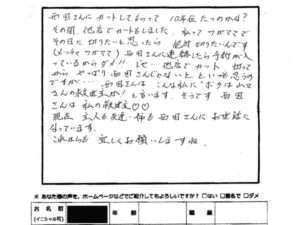 西田さんにカットしてもらって 10年位たつのかな?
その間、他店でカットもしました。 私ってワガママで
その日に切りたいと思ったら 絶対切りたいんです
(メッチャワガママ) 西田さんに連絡したら予約が入
っているからダメ!! じゃ… 他店でカット 切って
から やっぱり西田さんじゃないと… といつも思うの
ですが… 西田さんは こんな私に "ボクは
さんの救世主か"と言います。 そうです 西田
さんは 私の救世主♡♡
現在 主人も友達・姉も西田さんにお世話に
なっています。
これからも 宜しくお願いしますね。
※ あなた様の声を、ホームページなどでご紹介してもよろしいですか? □はい □匿名で □ダメ
お名前
(イニシャル可)
年齢
職業